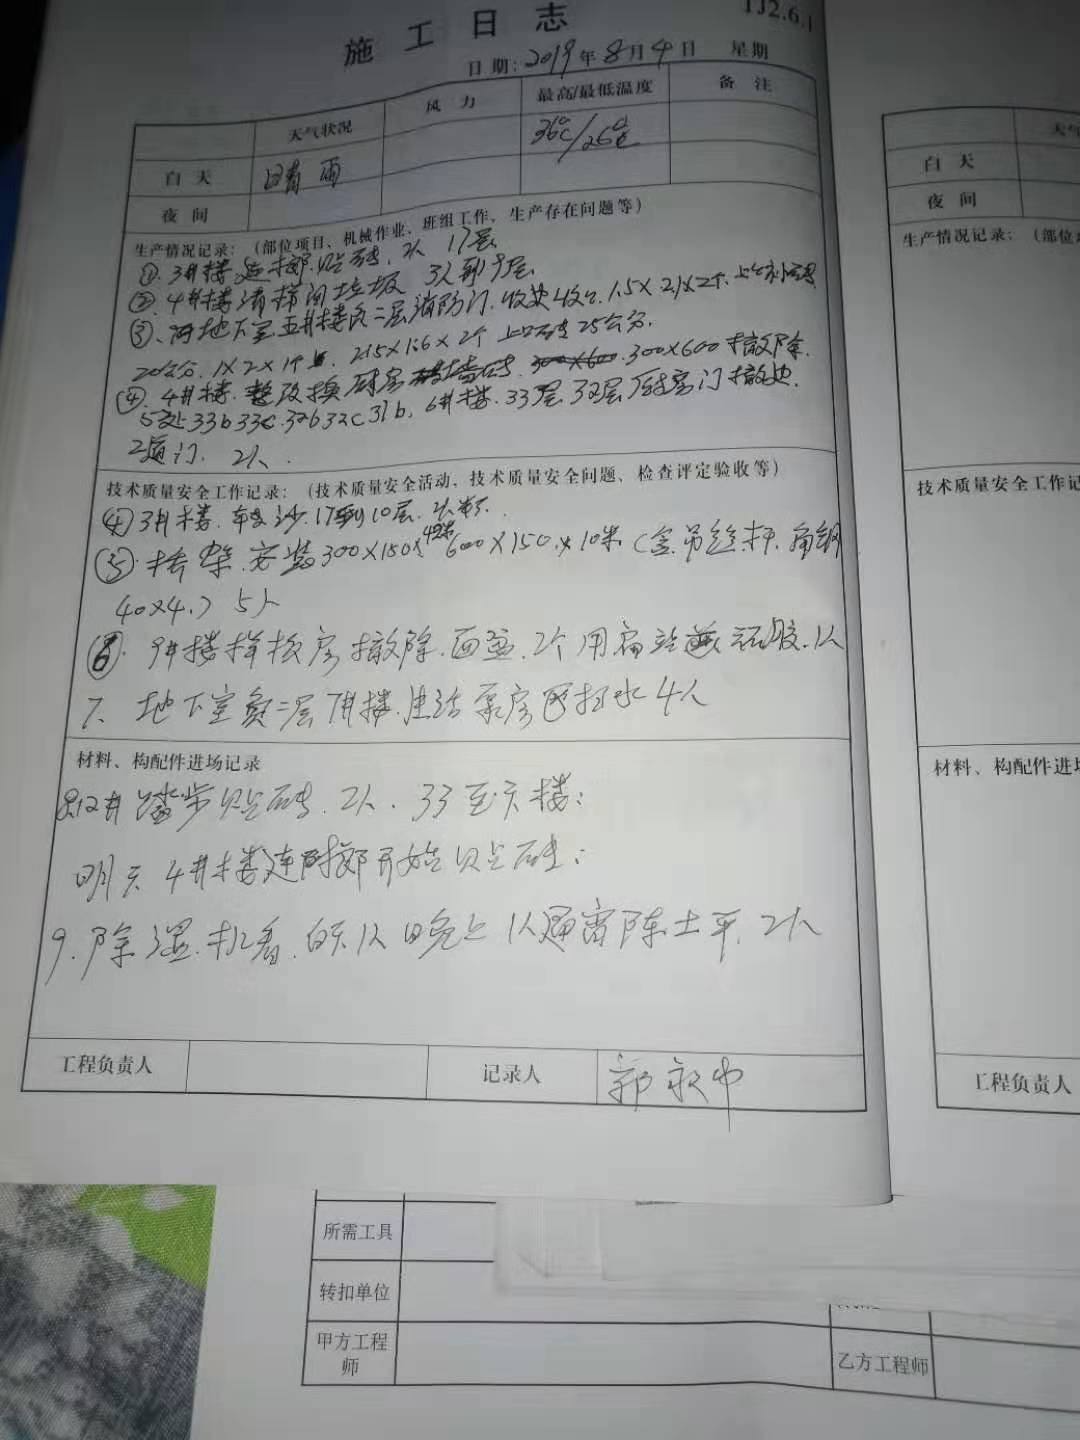 TJ2.6.1
施工日志
日期：2019年8月4日 星期
天气状况 风力 最高/最低温度 备注
白天 晴 雨 36℃/26℃
夜间
生产情况记录：（部位项目、机械作业、班组工作、生产存在问题等）
①. 3#楼 连廊.贴砖. 2人 17层
②. 4#楼清梯间垃圾 3人到9层
③、 地下室五#楼负二层消防门.收边 1.5×2.1×2个.
20公分. 1×2×1个 2.15×1.6×2个 上口 25公分.
④. 4#楼.整改换厨房墙砖. 300×600. 300×600撤除.
5处 33b 33c.32b 32c 31b. 6#楼.33层 32层厨房门撤边.
2扇门. 2人.
技术质量安全工作记录：（技术质量安全活动、技术质量安全问题、检查评定验收等）
④ 3#楼. 沙.17到10层.
⑤. 桥架.安装300×150× 600×150.×10米（含.吊丝.杆.角钢
40×4.） 5人
⑥. 9#楼样板房撤除.面盆.2个用 胶.1人
7、地下室负二层7#楼.生活泵房 扫水4人
材料、构配件进场记录
8.12#踏步贴砖.2人. 33至 楼；
明天4#楼连廊开始贴砖；
9.除湿.机看.白天1人晚上1人 2人
工程负责人 记录人 郭永中
天气
白天
夜间
生产情况记录：（部位
技术质量安全工作记
材料、构配件进场
工程负责人
所需工具
转扣单位
甲方工程师 乙方工程师